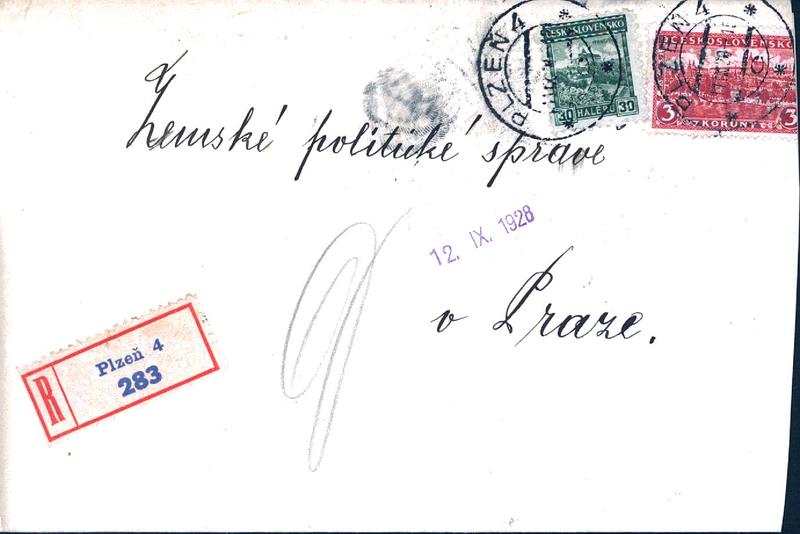 PLZEŇ 4
ČESKOSLOVENSKO
30 HALÉŘŮ 30
PLZEŇ 4
ČESKOSLOVENSKO
3 KORUNY 3
Zemské politické správě
12. IX. 1928
v Praze.
R
Plzeň 4
283